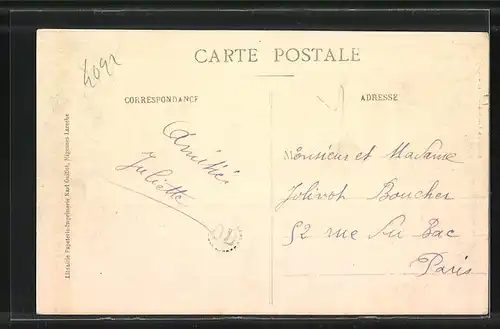 4092
CARTE POSTALE
CORRESPONDANCE
ADRESSE
Librairie Papeterie-Imprimerie Karl Guillot, Migennes Laroche
Amitié
Juliette
OD
Monsieur et Madame
Jolivot Boucher
52 rue du Bac
Paris